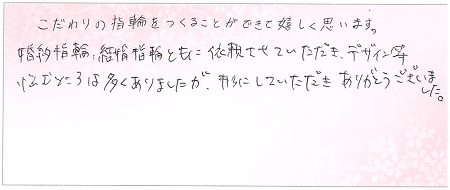 こだわりの指輪をつくることができて嬉しく思います。
婚約指輪、結婚指輪ともに依頼させていただき、デザイン等
悩むところは多くありましたが、形にしていただきありがとうございました。